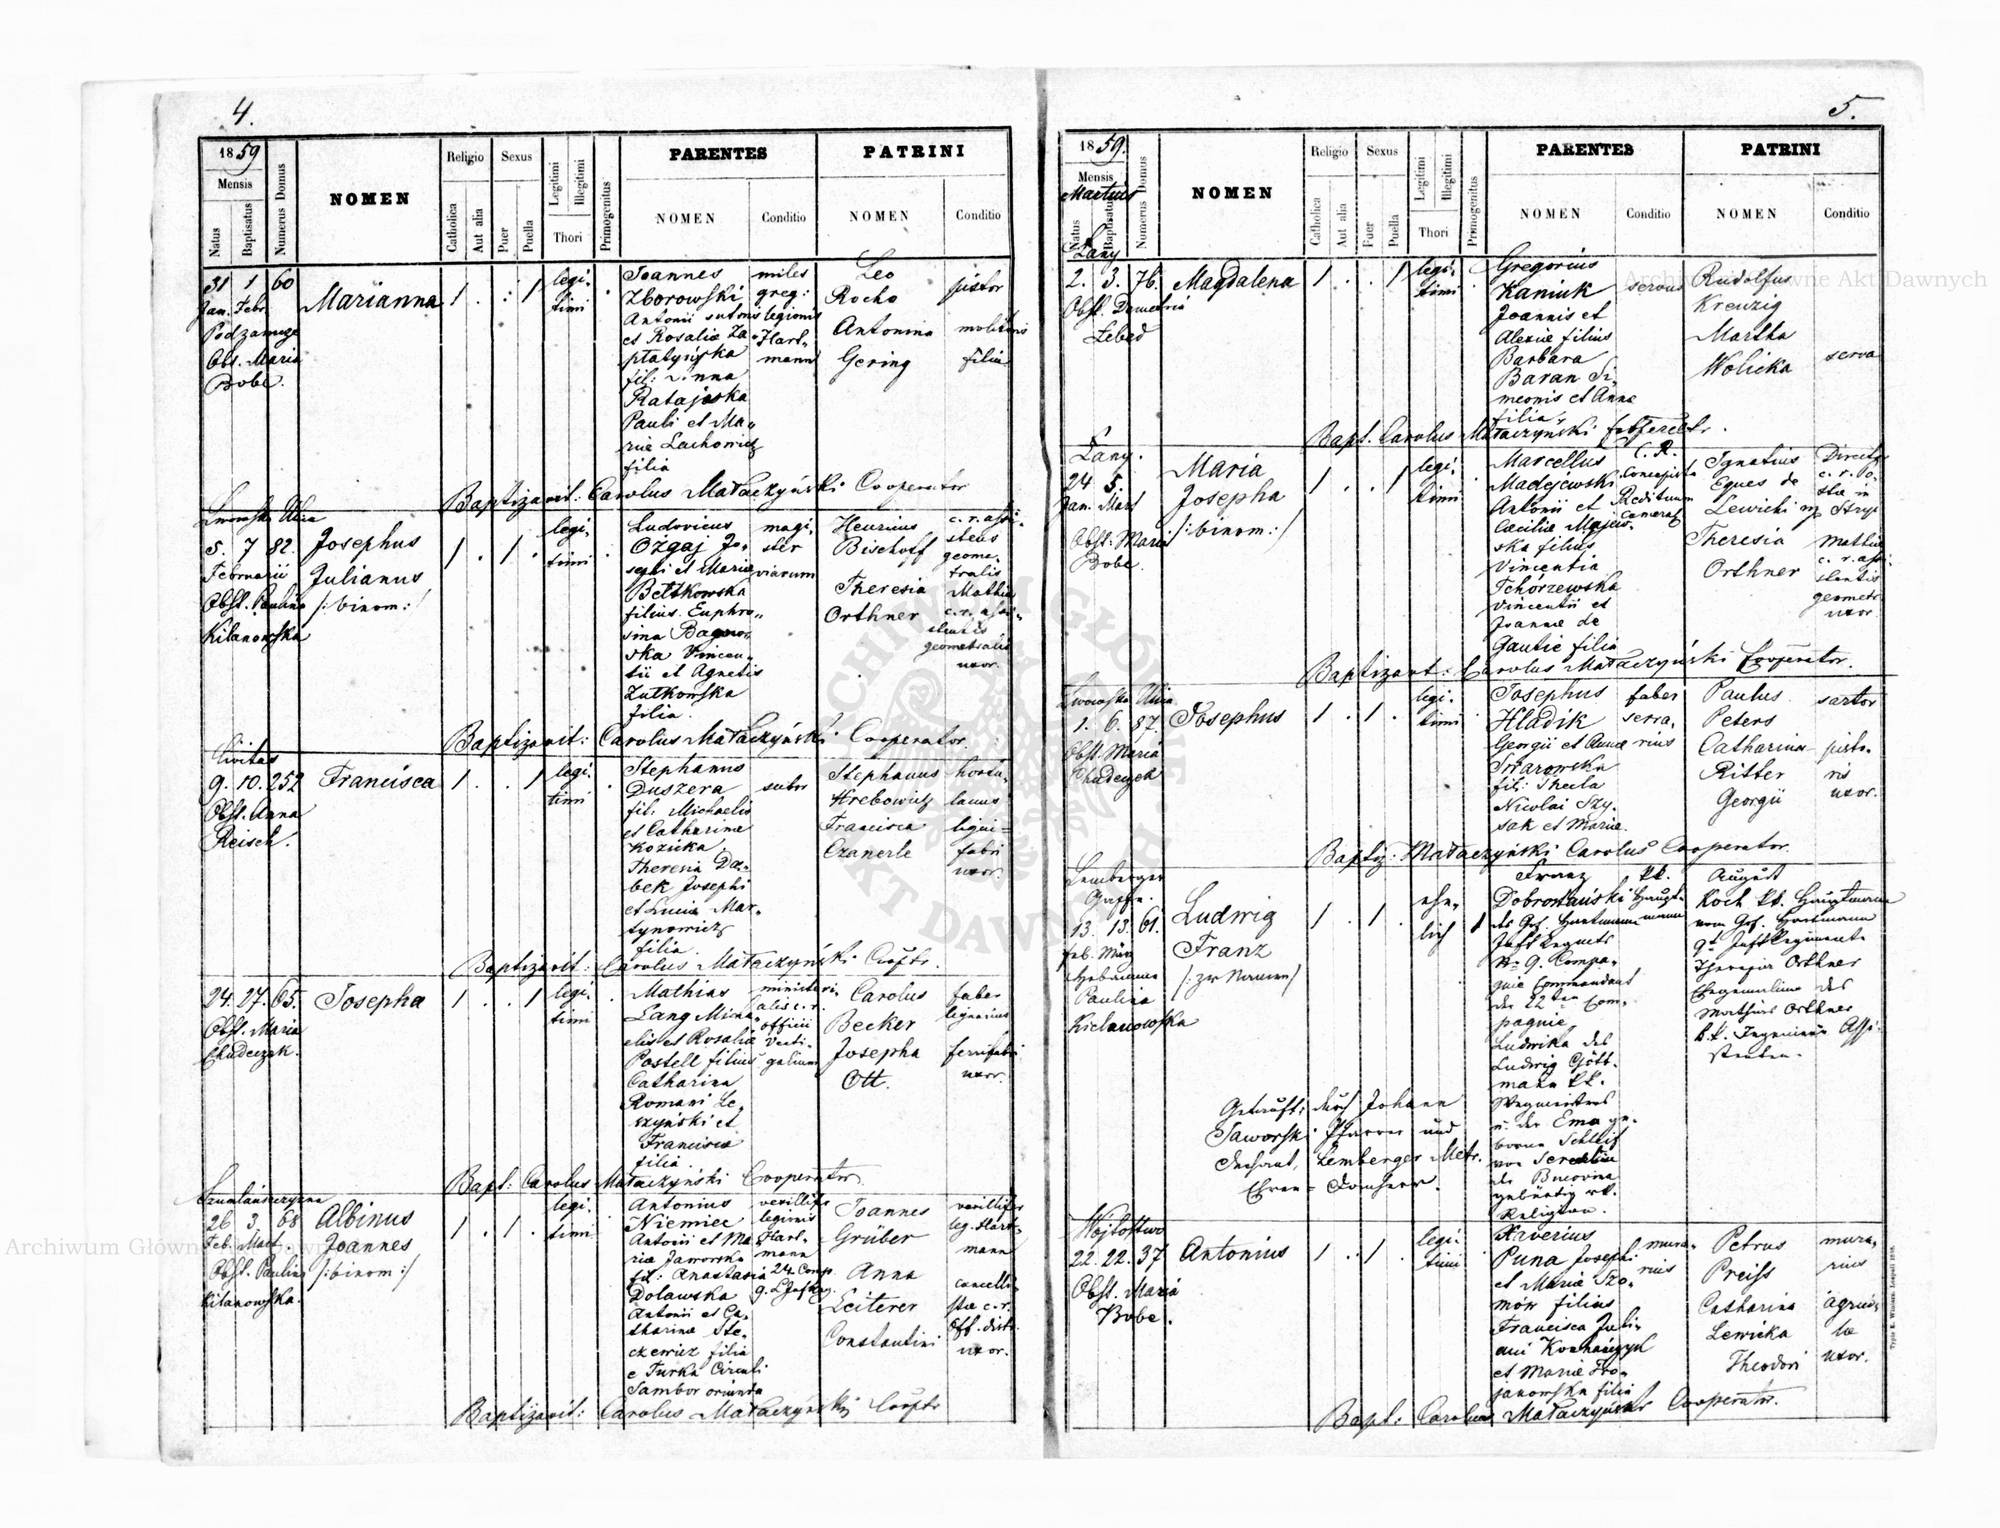 4.
1859
Mensis
Natus
Baptisatus
Numerus Domus
NOMEN
Religio
Catholica
Aut alia
Sexus
Puer
Puella
Legitimi
Illegitimi
Thori
Primogenitus
PARENTES
NOMEN
Conditio
PATRINI
NOMEN
Conditio
31 1 60
Jan. Febr.
Podzamcze
Obs. Maria
Bobe.
Marianna
1 . : 1
legi-
timi
Joannes
Zborowski
Antonii sutoris
et Rosaliae Za-
fil: Anna
Ratajska
Pauli et Ma-
riae Lachowicz
filia
miles
greg:
legionis
Hart-
mann
Leo
Rocho
Antonina
Gering
pistor
molitoris
filia
Baptizavit: Carolus Mataczyński Cooperator
Lwowska Ulica
5. 7 82.
Februarii
Obst. Paulina
Kilanowska
Josephus
Julianus
/: binom :/
1 . 1 .
legi-
timi
Ludovicus
Ożgaj Jo-
sephi et Mariae
Betkowska
filius. Euphro-
sina Bagnow
ska Vincen-
tii et Agnetis
Zutkowska
filia.
magi-
ster
viarum
Henricus
Bischoff
Theresia
Orthner
c. r. assi-
stens
geome-
tralis
Mathiae
c. r. assi-
stentis
geometralis
uxor.
Baptizavit: Carolus Mataczyński Cooperator.
Civitas
9. 10. 252
Obst. Anna
Reisch.
Francisca
1 . . 1
legi-
timi
Stephanus
Duszera
fil: Michaelis
et Catharinae
Kozicka
Theresia Da-
bek Josephi
et Luciae Mar-
tynowicz
filia.
sutor
Stephanus
Hrebowicz
Francisca
Czanerle
hortu-
lanus
ligni-
fabri
uxor.
Baptizavit: Carolus Mataczyński Cooptr.
24. 27. 65.
Obst. Maria
Chudczak.
Josepha
1 . . 1
legi-
timi
Mathias
Lang Micha-
elis et Rosaliae
Postell filius
Catharina
Romani Le-
szyński et
Francisca
filia.
ministeri-
alis c. r.
officii
Vecti-
galium
Carolus
Becker
Josepha
Ott.
faber
lignarius
ferrifabri
uxor.
Bapt: Carolus Mataczyński Cooperator.
Szumlańszczyzna
26 3. 68
Feb. Mart
Obst. Paulina
Kilanowska.
Albinus
Joannes
/: binom :/
1 . 1 .
legi-
timi
Antonius
Niemiec
Antonii et Ma
riae Jaworska
fil: Anastasia
Dolawska
Antonii et Ca-
tharinae Ste-
ckewicz filia
e Turka Circuli
Sambor oriunda
vexillifer
legionis
Hart-
mann
24. Comp.
Joannes
Grüber
Anna
Leiterer
Constantini
vexillifer
leg. Hart-
mann
cancelli-
stae c. r.
Off. distr.
uxor.
Baptizavit: Carolus Mataczyński Cooptr
5.
1859.
Mensis
Martius
Natus
Baptisatus
Numerus Domus
NOMEN
Religio
Catholica
Aut alia
Sexus
Puer
Puella
Legitimi
Illegitimi
Thori
Primogenitus
PARENTES
NOMEN
Conditio
PATRINI
NOMEN
Conditio
Łany
2. 3. 76.
Obst. Demetria
Lebed
Magdalena
1 . . 1
legi-
timi
Gregorius
Kaniuk
Joannis et
Alexiae filius
Barbara
Baran Si-
meonis et Annae
filia.
servus
Rudolfus
Kreuzig
Martha
Wolicka
serva
Bapt. Carolus Mataczyński
Łany.
24 5.
Jan. Mart
Obst: Maria
Bobe.
Maria
Josepha
/: binom :/
1 . . 1
legi-
timi
Marcellus
Madejewski
Antonii et
Caeciliae Majew-
ska filius
Vincentia
Tchórzewska
Vincentii et
Joannae de
Gautie filia
C. R.
Concepista
Redituum
Cameral
Ignatius
Eques de
Lewicki
Theresia
Orthner
Director
c. r. Po-
stae in
Stryj
Mathiae
c. r. assi-
stentis
geometr.
uxor
Baptizavt: Carolus Mataczyński Cooperator.
Lwowska Ulica
1. 6. 87.
Obst. Maria
Chudczak
Josephus
1 . 1 .
legi-
timi
Josephus
Hladik
Georgii et Annae
Swarowska
fil: Thecla
Nicolai Szy-
sak et Mariae.
faber
serra-
rius
Paulus
Peters
Catharina
Ritter
Georgii
sartor
pisto-
ris
uxor.
Baptiz: Mataczyński Carolus Cooperator.
Lemberger
Gasse.
13. 13. 61.
feb. März
Hebamme
Paulina
Kielanowska
Ludwig
Franz
/: zw Namen /
1 . 1 .
ehe-
lich
1
Franz
Dobromański
des Gf. Hartmann
Inft Regmts
Nro 9. Compa-
gnie Commandant
der 22ten Com-
pagnie,
Ludwika des
Ludwig Gött-
mann kk.
Wegmeisters
u. der Ema ge-
borne Schleif
von Sereth in
der Bucovina
gebürtig rk.
Religion.
kk.
Haupt-
mann
August
Koch kk. Hauptmann
vom Gf. Hartmann
9t Inft Regiment.
Theresia Orthner
Ehegemalinn des
Mathias Orthner
k. k. Ingenieur Assi-
stenten.
Getauft: durch Johann
Jaworski Pfarrer und
Dechant, Lemberger Metr.
Ehren-Domherr.
Wójtostwo
22. 22. 37
Obst. Maria
Bobe.
Antonius
1 . 1 .
legi-
timi
Xaverius
Puna Josephi
et Mariae Szo-
mów filius
Francisca Juli-
ani Kochańczyk
et Mariae Tro-
janowska filia
mura-
rius
Petrus
Preiss
Catharina
Lewicka
Theodori
mura-
rius
agrico-
lae
uxor.
Bapt: Carolus Mataczyński Cooperator.
Archiwum Główne Akt Dawnych
Archiwum Główne Akt Dawnych
ARCHIWUM GŁÓWNE AKT DAWNYCH